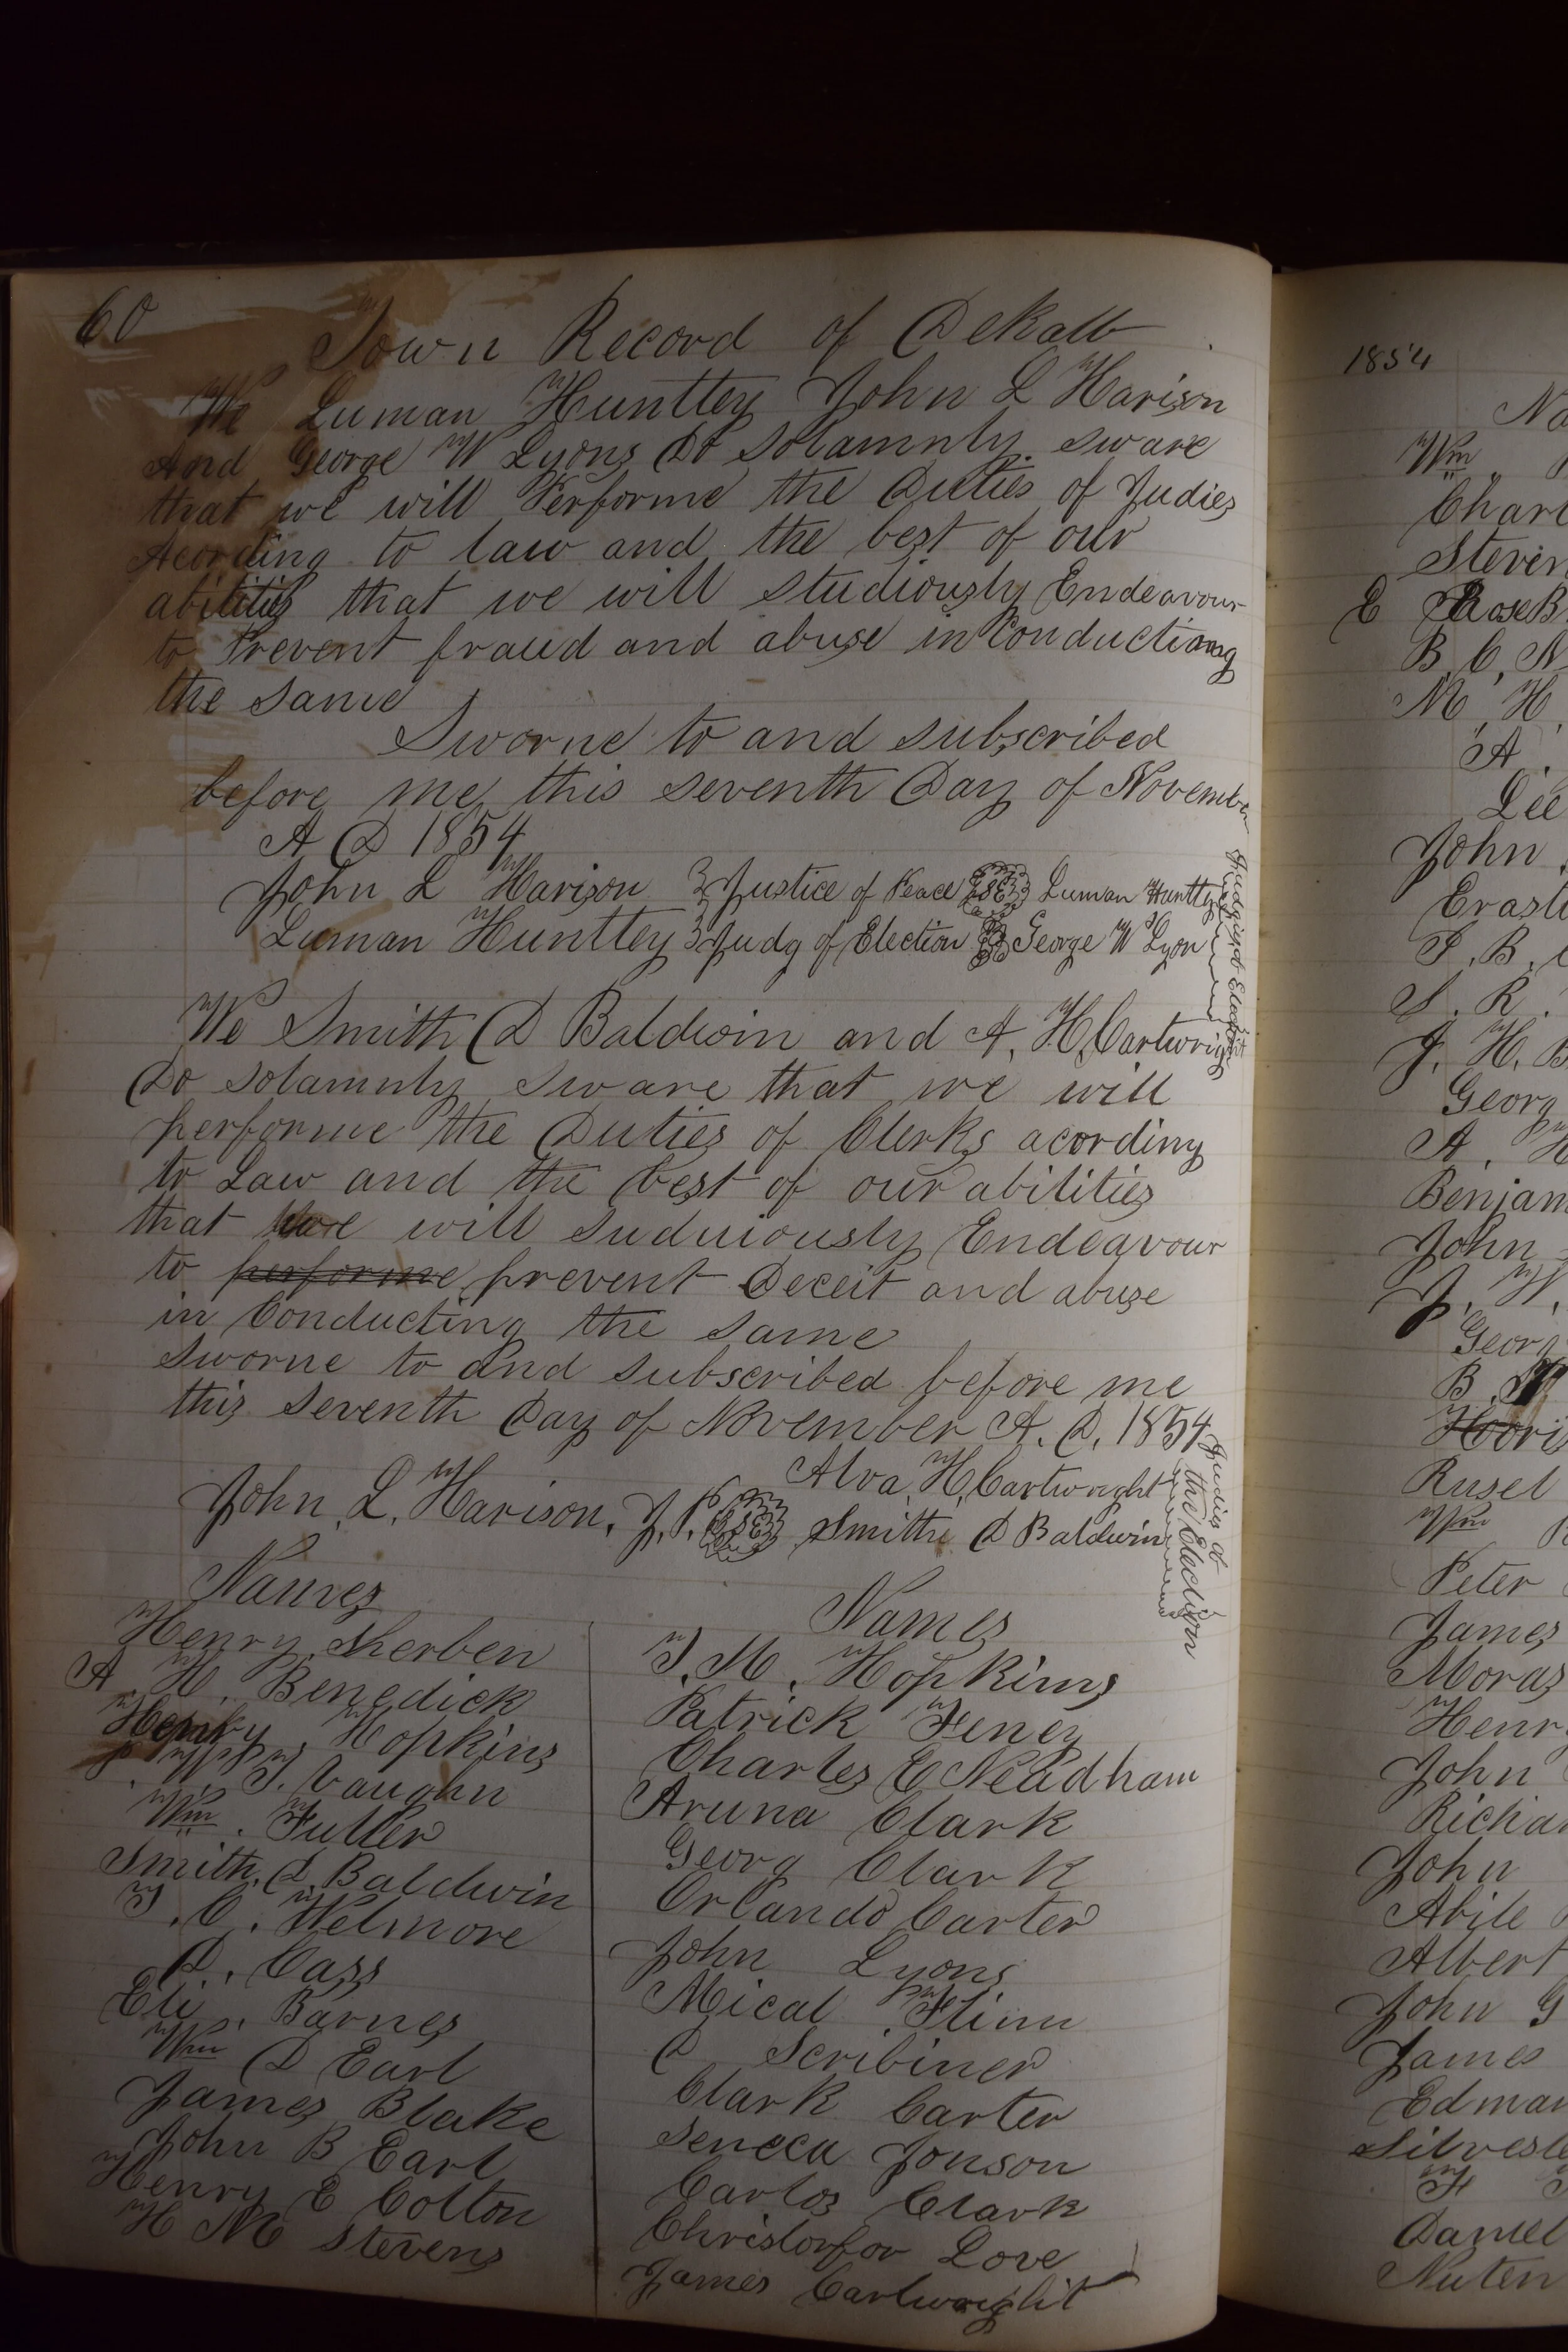 60
Town Record of DeKalb
We Luman Huntley John L Harison
And George W Lyons Do Solamnly sware
that we will Performe the Duties of Judies
Acording to law and the best of our
abilities that we will studiously Endeavour
to Prevent fraud and abuse in Conducting
the same
Sworne to and subscribed
before me this seventh Day of November
A D 1854
John L Harison Justice of Peace Luman Huntley
Luman Huntley Judg of Election George W Lyon
We Smith D Baldwin and A. H. Cartwright
Do Solamnly sware that we will
performe the Duties of Clerks acording
to Law and the best of our abilities
that we will Suduiously Endeavour
to performe prevent Deceit and abuse
in Conducting the same
sworne to and subscribed before me
this seventh Day of November A. D. 1854
Alva H. Cartwright
John L. Harison, J. P. Smith D Baldwin
Judies of the Election
Names
Henry Sherben
A. H. Benedick
Henry Hopkins
T. Vaughn
Wm. Fuller
Smith. D. Baldwin
T. C. Welmore
D. Cass
Eli. Barnes
Wm D Earl
James Blake
John B Earl
Henry E Colton
H M Stevens
Names
T. M. Hopkins
Patrick Feney
Charles E Neadham
Aruna Clark
Georg Clark
Orlando Carter
John Lyons
Mical Flinn
D Scribiner
Clark Carter
Seneca Jonson
Carlos Clark
Christorfor Love
James Cartwright
1854
Wm
Steven
B. C. N
M. H.
A.
Lee
John
S. R.
J. H. B
Georg
A. H
Benjam
John
J. W.
Georg
B.
Rusel
Wm
Peter
James
Moras
Henr
John
Richa
John
Abile
Albert
John G
James
Edmar
Silveste
Daniel
Nuten